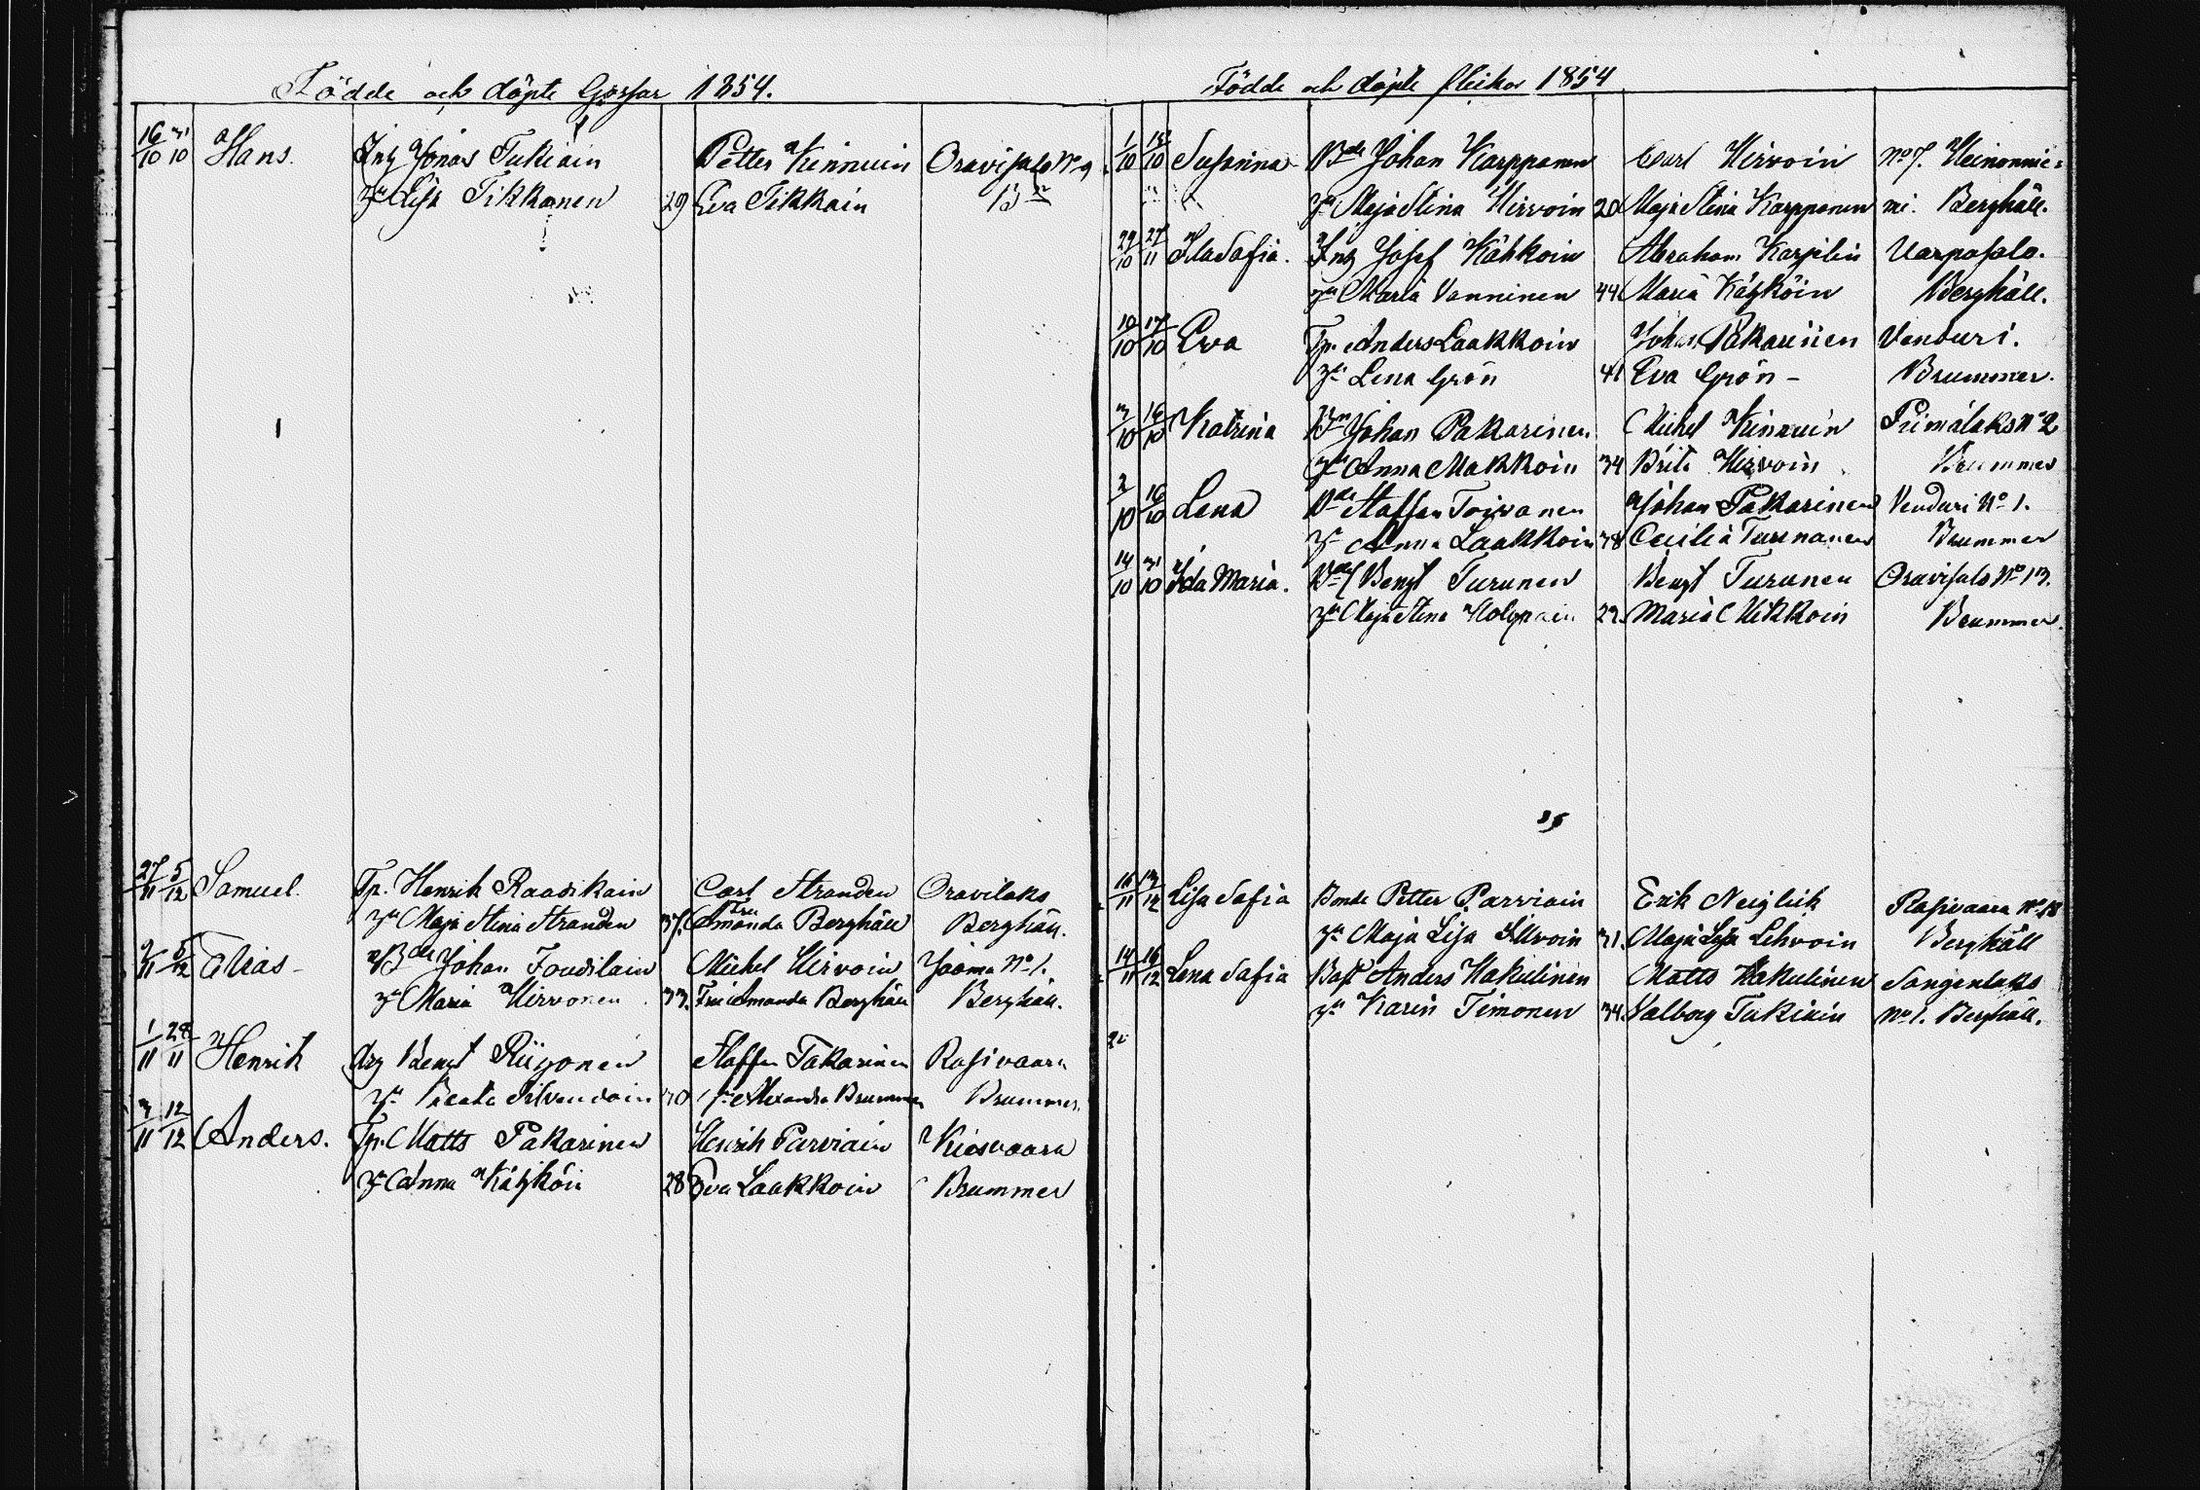 Födde och döpte Gossar 1854.
16/10 31/10 Hans. Inh Jonas Tukiain Petter Kinnuin Oravisalo No 9
hu Lisa Tikkanen 29 Eva Tikkain Br
27/11 5/12 Samuel. Tp. Henrik Raasikain Carl Stranden Oravilaks
hu Maja Stina Stranden 37. Fru Amanda Berghäll Berghäll.
9/11 5/12 Elias Bde Johan Michel Hirvoin Jaama No 1.
hu Maria Hirvonen 33. Fru Amanda Berghäll Berghäll.
1/11 28/11 Henrik Bengt Riigonen Staffan Pakarinen Rasivaara
hu Beata Silvendoin 30 Alexandra Brummer Brummer.
3/11 12/12 Anders. Tp. Matts Pakarinen Henrik Parviain
hu Anna Kähköin 28 Eva Laakkoin Brummer
Födde och döpte flickor 1854
1/10 15/10 Susanna Bde Johan Karppanen Carl Hirvoin No 7. Heinonnie=
hu Maja Stina Hirvoin 20 Maja Stina Karppanen mi. Berghäll.
29/10 27/11 Ida Sofia. Inh Josef Kähkoin Abraham Karpilin Varpasalo.
hu Maria Vanninen 44 Maria Käyhköin Berghäll.
10/10 17/10 Eva Tp. Anders Laakkoin Johan Pakarinen Venduri.
hu Lena Grön 41 Eva Grön - Brummer.
3/10 16/10 Katrina Bn Johan Pakarinen Michel Kinnuin Piimälaks No 2
hu Anna Makkoin 34 Brita Hirvoin Brummer
2/10 16/10 Lena Bde Staffan Toivanen Johan Pakarinen Venduri No 1.
hu Anna Laakkoin 38 Cecilia Turunanen Brummer
14/10 31/10 Ida Maria. Bde Bengt Turunen Bengt Turunen Oravisalo No 13.
hu Maja Stina Holopain 29. Maria Mikkoin Brummer.
16/11 13/12 Lisa Sofia Bonde Petter Parviain Erik Neiglick Rasivaara No 18
hu Maja Lisa Hirvoin 31. Maja Lisa Lehvoin Berghäll
14/11 16/12 Lena Sofia Anders Hakulinen Matts Hakulinen Sangenlaks
hu Karin Timonen 34. Valborg Tukiain No 1. Berghäll.